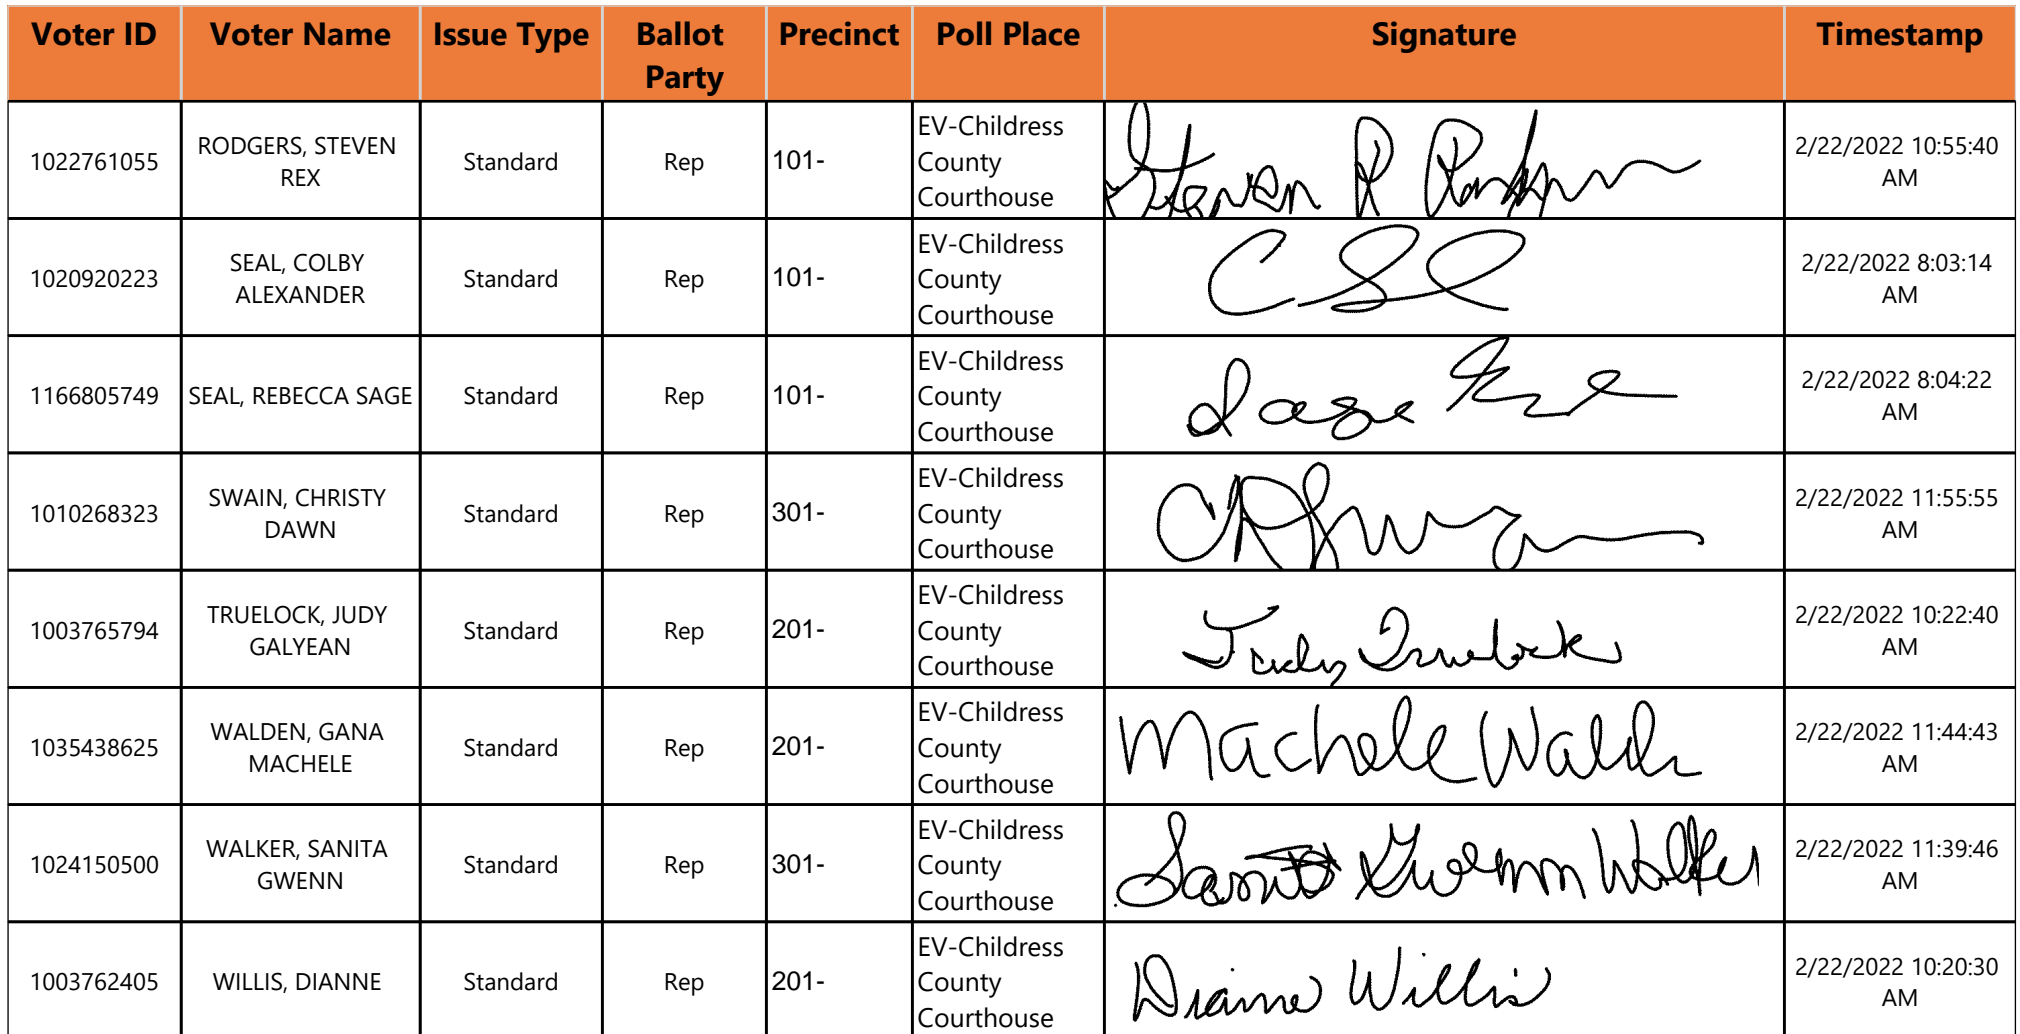 Voter ID Voter Name Issue Type Ballot Party Precinct Poll Place Signature Timestamp
1022761055 RODGERS, STEVEN REX Standard Rep 101- EV-Childress County Courthouse Steven R 2/22/2022 10:55:40 AM
1020920223 SEAL, COLBY ALEXANDER Standard Rep 101- EV-Childress County Courthouse 2/22/2022 8:03:14 AM
1166805749 SEAL, REBECCA SAGE Standard Rep 101- EV-Childress County Courthouse Sage 2/22/2022 8:04:22 AM
1010268323 SWAIN, CHRISTY DAWN Standard Rep 301- EV-Childress County Courthouse 2/22/2022 11:55:55 AM
1003765794 TRUELOCK, JUDY GALYEAN Standard Rep 201- EV-Childress County Courthouse Judy Truelock 2/22/2022 10:22:40 AM
1035438625 WALDEN, GANA MACHELE Standard Rep 201- EV-Childress County Courthouse Machele Walden 2/22/2022 11:44:43 AM
1024150500 WALKER, SANITA GWENN Standard Rep 301- EV-Childress County Courthouse Sanita Gwenn Walker 2/22/2022 11:39:46 AM
1003762405 WILLIS, DIANNE Standard Rep 201- EV-Childress County Courthouse Dianne Willis 2/22/2022 10:20:30 AM